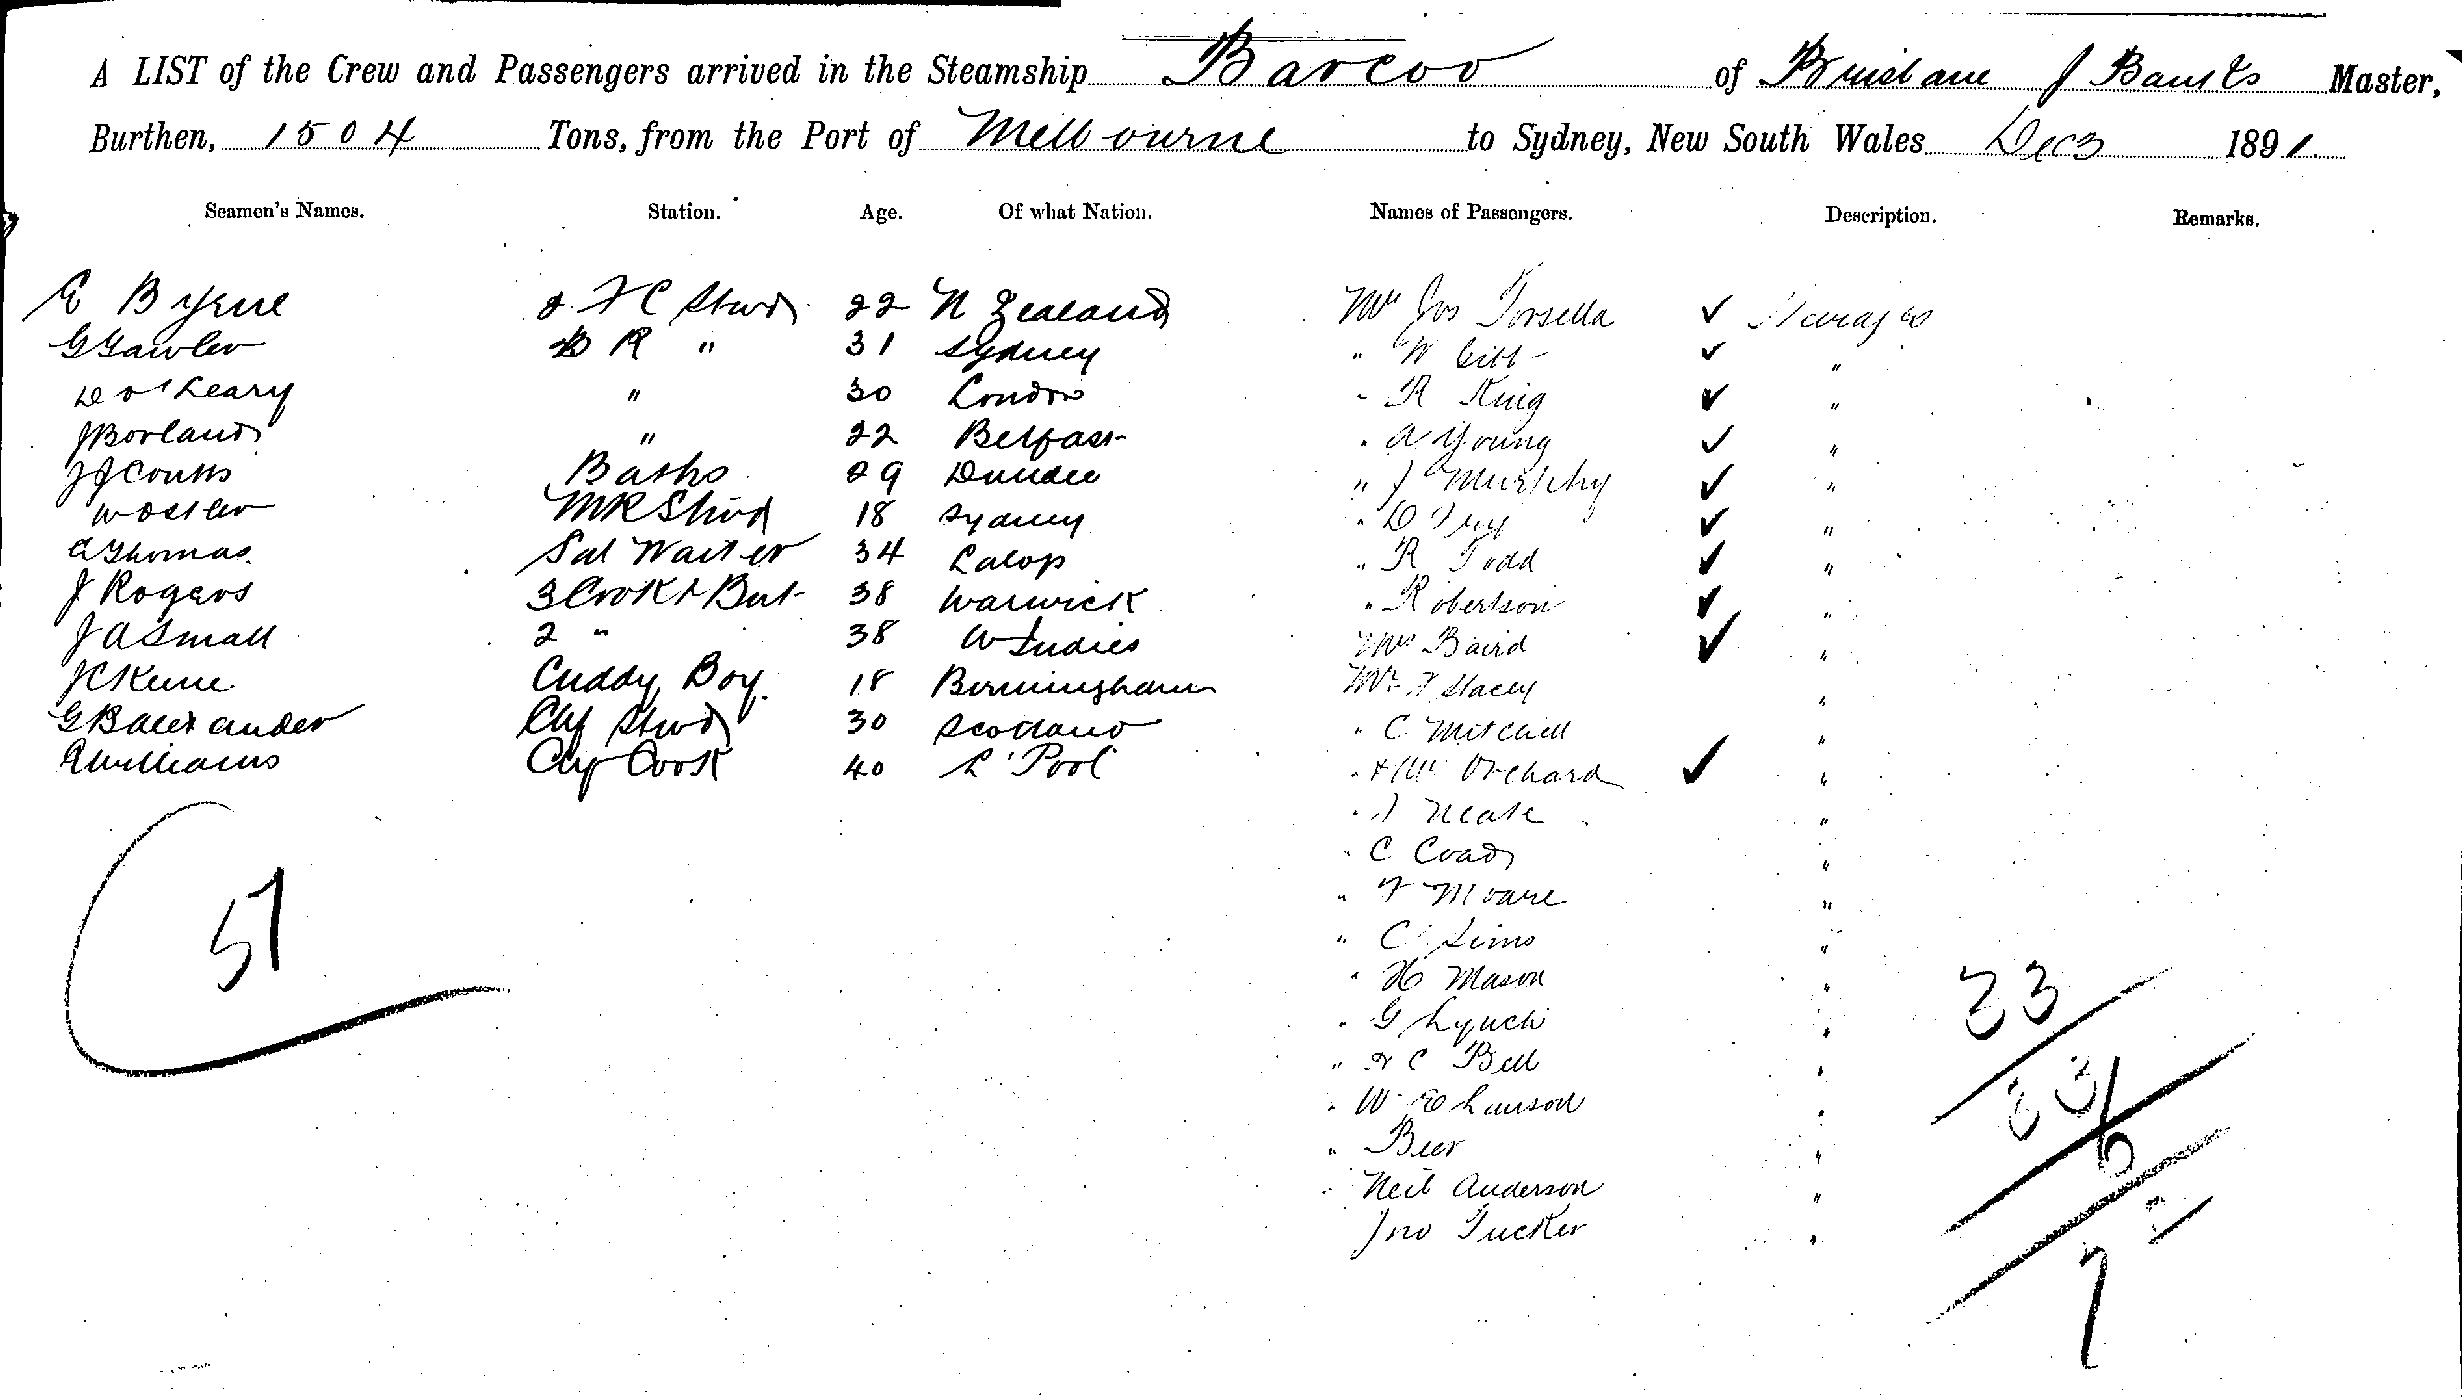 A LIST of the Crew and Passengers arrived in the Steamship Barcoo of Brisbane J Banks Master,
Burthen, 1504 Tons, from the Port of Melbourne to Sydney, New South Wales Dec 3 1891.
Seamen's Names. Station. Age. Of what Nation. Names of Passengers. Description. Remarks.
E Byrne 2 F C Stwd 22 N Zealand Mr Jos Torsella ✓ Steerage
G Gawler B R " 31 Sydney " W Gibb ✓ "
D O'Leary " 30 London " R King ✓ "
J Borland " 22 Belfast " A Young ✓ "
J J Coutts Baths 29 Dundee " J Murphy ✓ "
W Ostler M R Stwd 18 Sydney " D Fry ✓ "
A Thomas Sal Waiter 34 Salop " R Todd ✓ "
J Rogers 3 Cook & But 38 Warwick " Robertson ✓ "
J A Small 2 " 38 W Indies Mrs Baird ✓ "
J C Keene Cuddy Boy 18 Birmingham Mr F Stacey "
G B Alexander Chf Stwd 30 Scotland " C Mitchell "
R Williams Chf Cook 40 L'Pool " & Mrs Orchard ✓ "
" J Neate "
" C Coady "
" F Moare "
" C Sims "
" H Mason "
" G Lynch "
" H C Bell "
" W E Lanson "
" Beer "
" Neil Anderson "
Jno Tucker "
57
33
33
6
7